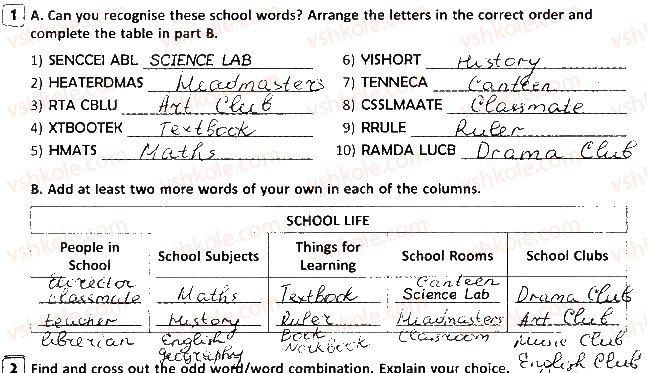 1 A. Can you recognise these school words? Arrange the letters in the correct order and
complete the table in part B.
1) SENCCEI ABL SCIENCE LAB
6) YISHORT History
2) HEATERDMAS Headmasters
7) TENNECA Canteen
3) RTA CBLU Art Club
8) CSSLMAATE Classmate
4) XTBOOTEK Textbook
9) RRULE Ruler
5) HMATS Maths
10) RAMDA LUCB Drama Club
B. Add at least two more words of your own in each of the columns.
SCHOOL LIFE
People in School | School Subjects | Things for Learning | School Rooms | School Clubs
director
classmate | Maths | Textbook | Canteen Science Lab | Drama Club
teacher | History | Ruler | Headmasters | Art Club
librerian | English | Book | Classroom | Music Club
geography | Notebook | English Club
2 Find and cross out the odd word/word combination. Explain your choice.
vshkole.com